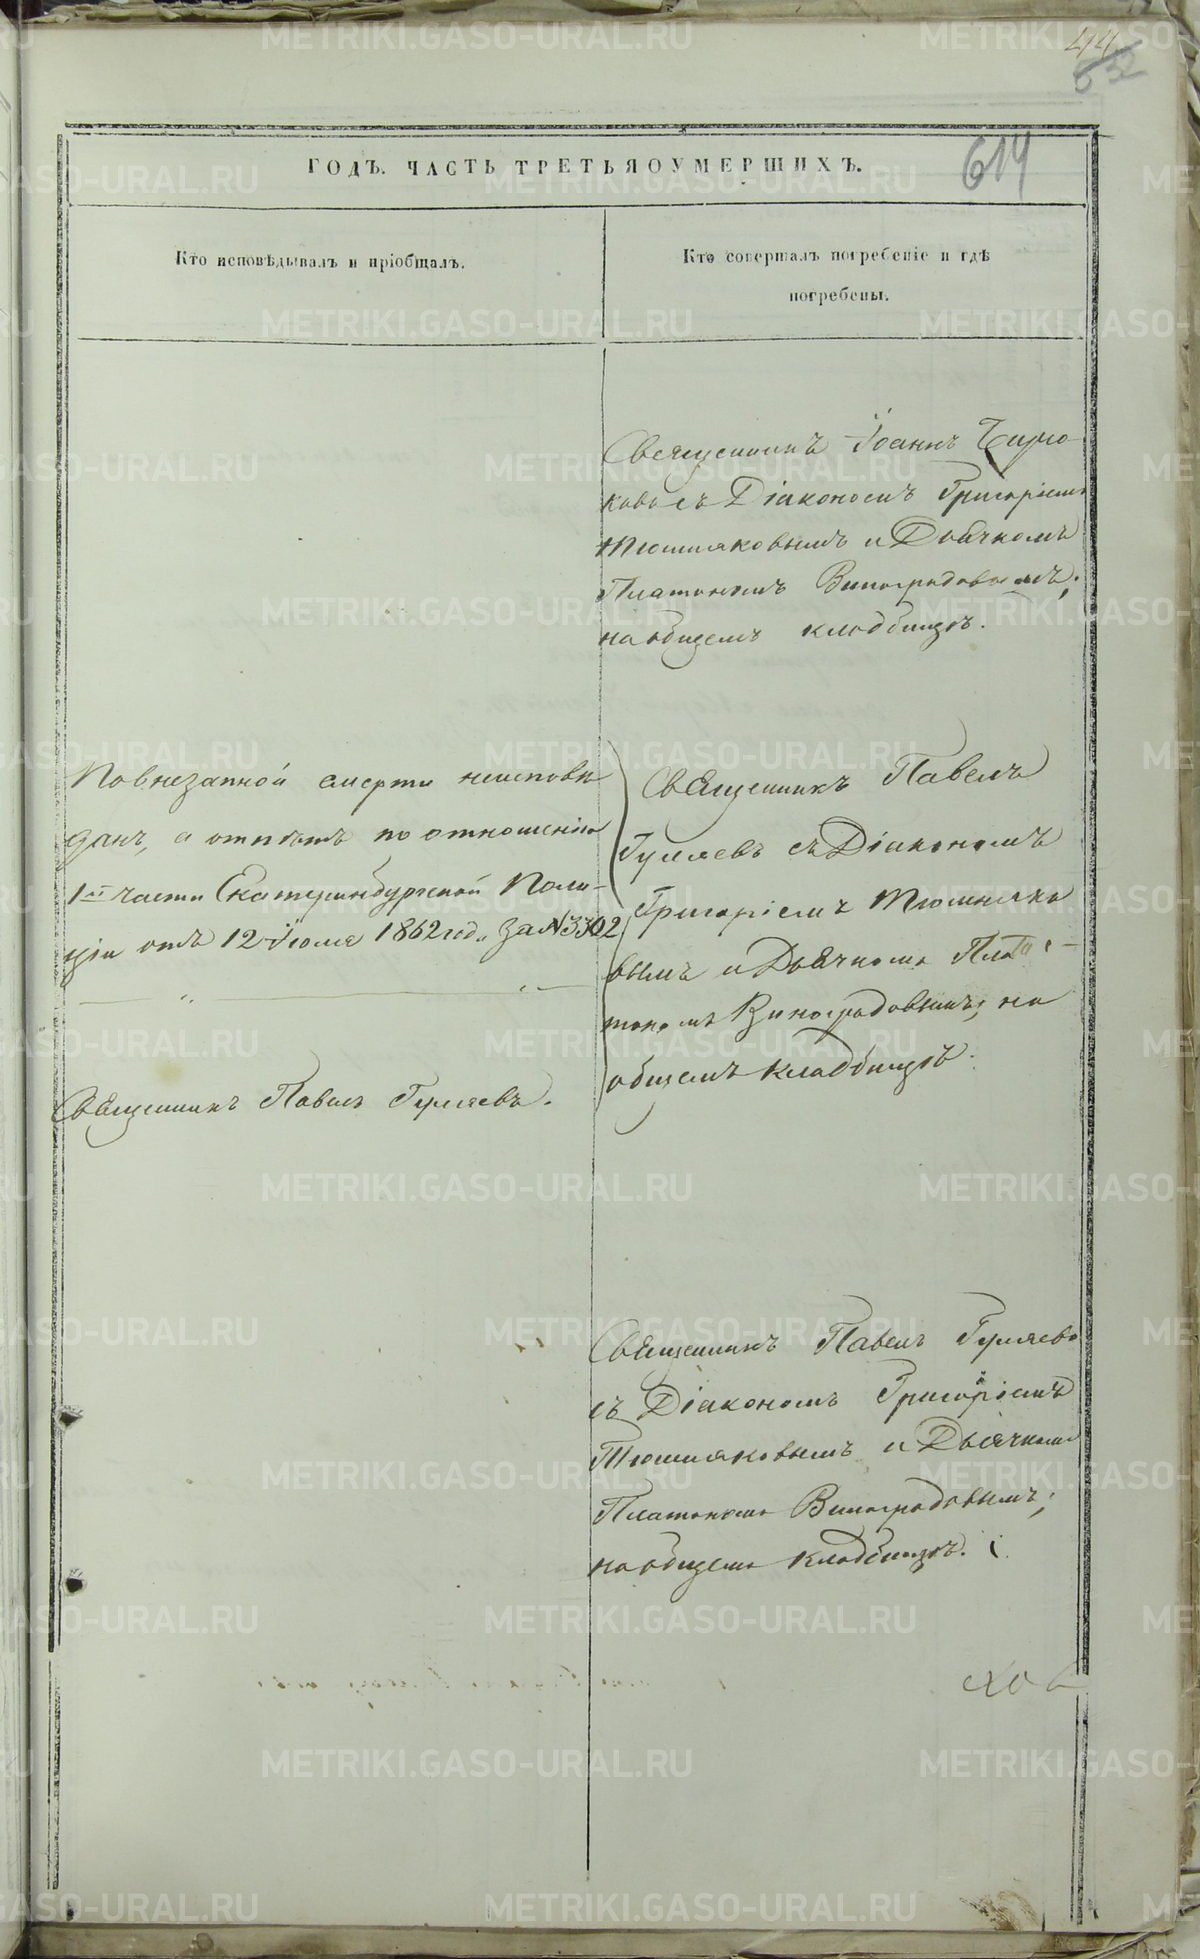 44
614
ГОДЪ. ЧАСТЬ ТРЕТЬЯ О УМЕРШИХЪ.
Кто исповѣдывалъ и пріобщалъ.
Кто совершалъ погребеніе и гдѣ
погребены.
Священникъ Іоаннъ
съ Діакономъ Григоріемъ
Тюшняковымъ и Дьячкомъ
Платономъ Виноградовымъ;
на общемъ кладбищѣ.
По внезапной смерти неисповѣ
данъ, а отпѣтъ по отношенію
1й части Екатеринбургской Поли-
ціи отъ 12 Іюля 1862 года за №3302
Священникъ Павелъ
Гуляевъ съ Діакономъ
Григоріемъ Тюшняко
вымъ и Дьячкомъ Пла-
тономъ Виноградовымъ; на
общемъ кладбищѣ.
Священникъ Павелъ Гуляевъ.
Священникъ Павелъ Гуляевъ
съ Діакономъ Григоріемъ
Тюшняковымъ и Дьячкомъ
Платономъ Виноградовымъ;
на общемъ кладбищѣ.
METRIKI.GASO-URAL.RU